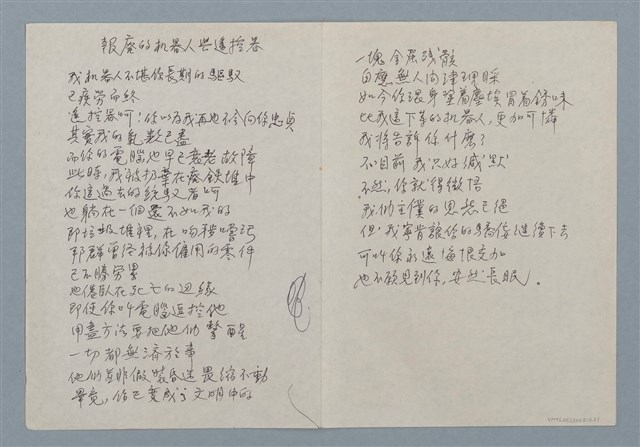 報廢的机器人與遙控器
我机器人不堪你長期的驅馭
已疲勞而終
遙控器呵!你以為我再也不会向你忠貞
其實我的氣數已盡
而你的電腦也早已衰老故障
此時,我被扔棄在廢鉄堆中
你這過去的統馭者呵
也躺在一個還不如我的
即垃圾堆裡,在
那群曾经被你僱用的零件
已不勝勞累
也倦臥在死亡的边緣
即使你叫電腦遥控他
用盡方法要把他们擊醒
一切都無濟於事
他們無非假裝昏迷畏縮不動
畢竟,你已变成了文明中的
一塊金屬残骸
自應無人向津理睬
如今你渾身堅着塵埃冒着銹味
比我這下等的机器人,更加可憐
我将告訴你什麼?
不!目前我只好缄默
不然,你就得徹悟
我们主僕的思想已绝
但,我寧肯讓你的驕傲继续下去
可叫你永遠悔恨交加
也不願見到你,安然長眠。